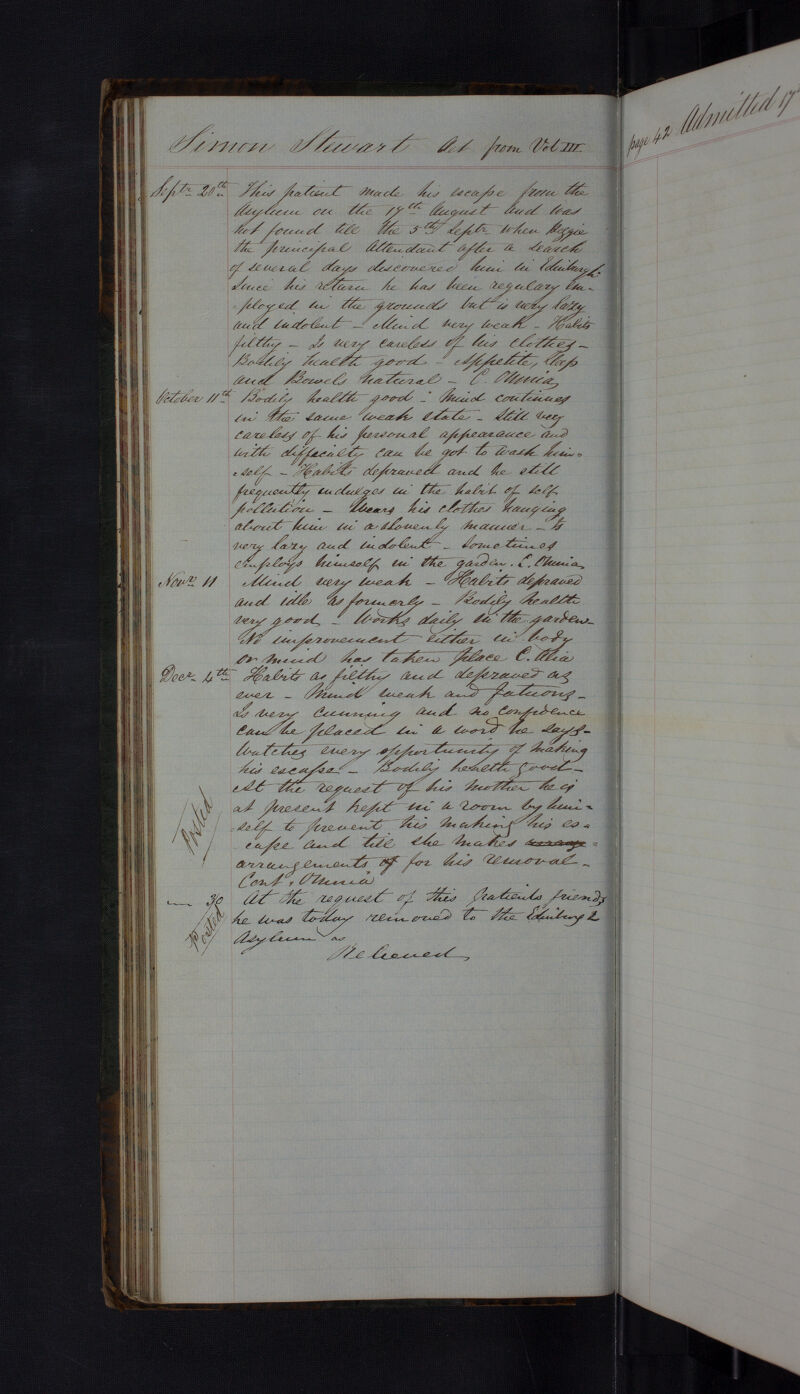 Simon Stewart Ad from Vol III.
Septr 20th This patient made his escape from the
Asylum on the 17th August and was
not found till the 5th Septr when
the principal Attendant after a search
of several days discovered him in Edinburgh
Since his return he has been regulary em-
-ployed in the grounds but is very lazy
and indolent - Mind very weak - Habits
filthy - Is very careless of his clothes -
Bodily health good - Appetite, Sleep
and Bowels natural - C. Omnia
October 11th Bodily health good - Mind continues
in the same weak state - Still very
careless of his personal appearance and
with difficulty can be got to wash him-
-self - Habits depraved and he still
frequently indulges in the habit of self
pollution - Wears his clothes hanging
about him in a slovenly manner - Is
very lazy and indolent - Sometimes
employs himself in the garden. C. Omnia
Novr 11 Mind very weak - Habits depraved
and idle as formerly - Bodily health
very good - Works daily in the garden
No improvement either in body
or mind has taken place C. Alia
Decr 4th Habits as filthy and depraved as
ever - Mind weak and fatuous -
Is very cunning and no confidence
can be placed in a word he says -
Watches every opportunity of making
his escape - Bodily health good -
At the request of his mother he is
at present kept in a room by him-
-self to prevent his making his es-
cape and till she makes
Posted
arrangements of for his removal -
Cont. Omnia
30 At the request of this patients friends
he was today removed to the Edinburgh
Posted
Asylum as
Relieved
page 42 Admitted 17